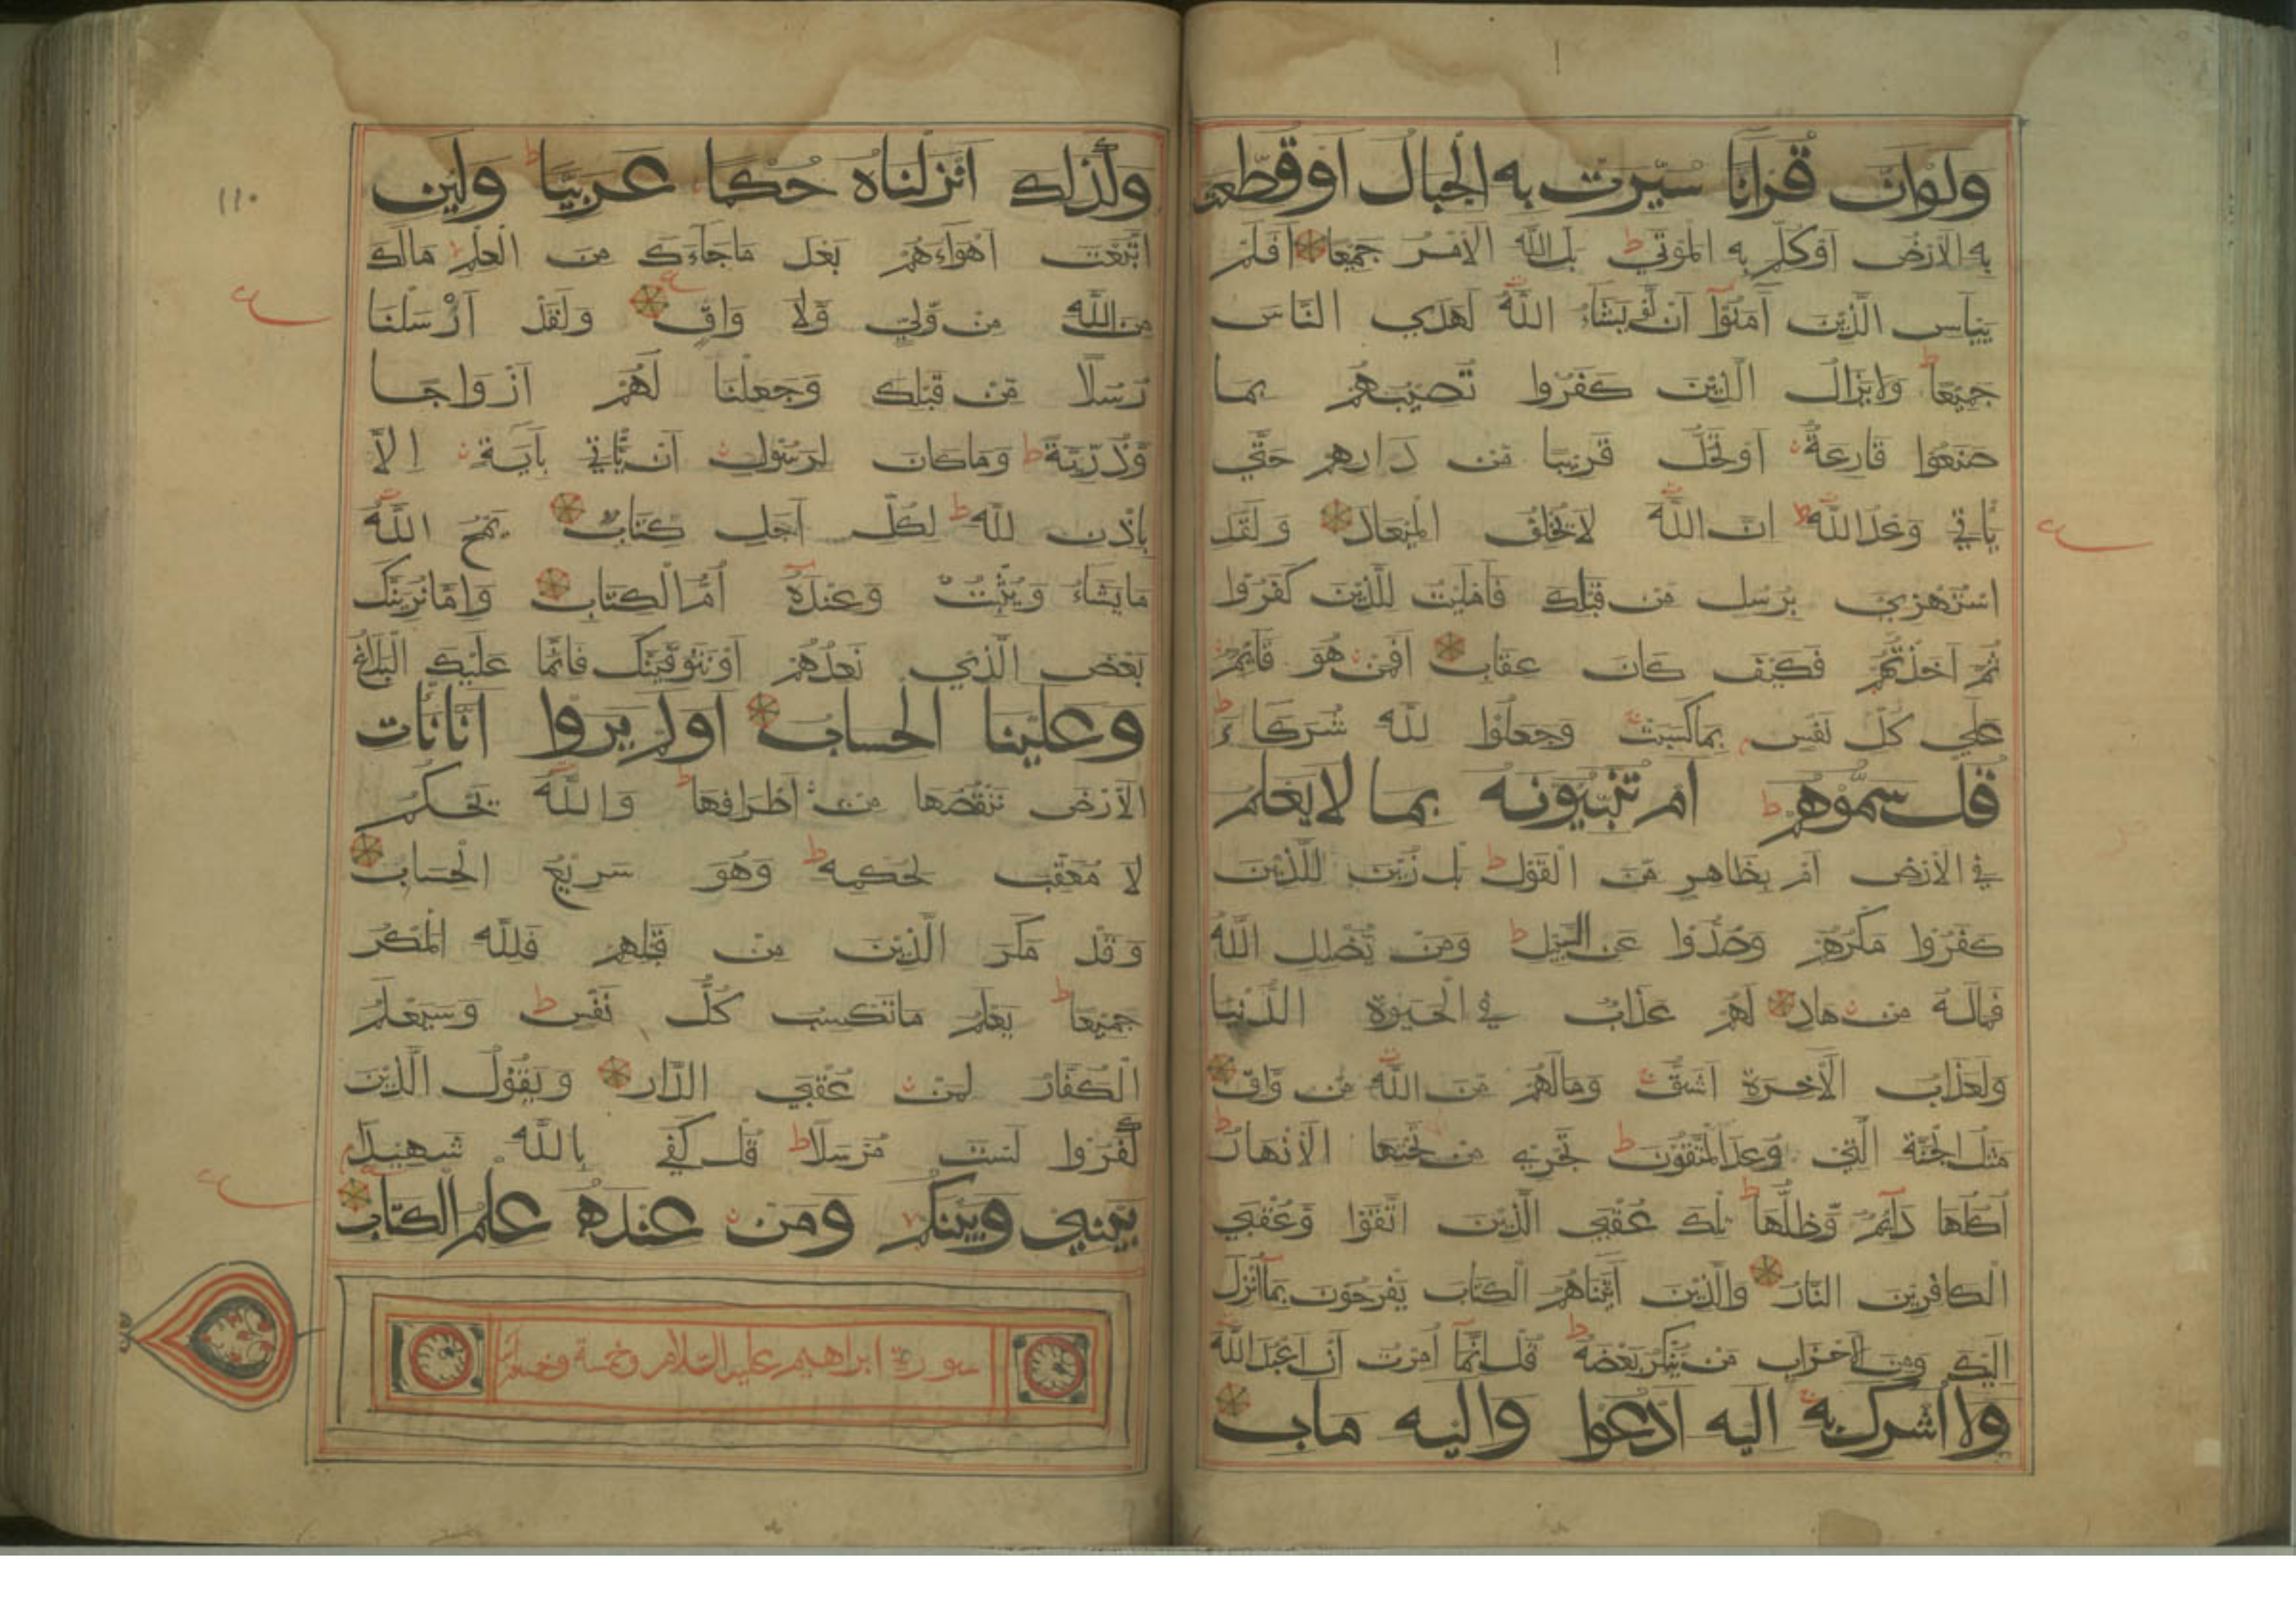 ولوان قرانا سيّرت به الجبال اوقطعت
به الارض اوكلم به الموتي بل لله الامر جميعا افلم
ييأس الذين آمنوا ان لو يشاء الله لهدي الناس
جميعا ولايزال الذين كفروا تصيبهم بما
صنعوا قارعة اوتحل قريبا من دارهم حتي
يأتي وعدالله ان الله لايخلف الميعاد ولقد
استهزئ برسل من قبلك فامليت للذين كفروا
ثم اخذتهم فكيف كان عقاب افمن هو قائم
علي كل نفس بماكسبت وجعلوا لله شركاء
قل سموهم ام تنبئونه بما لايعلم
في الارض ام بظاهر من القول بل زين للذين
كفروا مكرهم وصدوا عن السبيل ومن يضلل الله
فماله من هاد لهم عذاب في الحيوة الدنيا
ولعذاب الآخرة اشق ومالهم من الله من واق
مثل الجنة التي وعدالمتقون تجري من تحتها الانهار
اكلها دائم وظلها تلك عقبي الذين اتقوا وعقبي
الكافرين النار والذين آتيناهم الكتاب يفرحون بماانزل
اليك ومن الاحزاب من ينكر بعضه قل انما امرت ان اعبدالله
ولااشرك به اليه ادعوا واليه ماب
وكذلك انزلناه حكما عربيا ولئن
اتبعت اهواءهم بعد ماجاءك من العلم مالك
من الله من ولي ولا واق ولقد ارسلنا
رسلا من قبلك وجعلنا لهم ازواجا
وذرية وماكان لرسول ان ياتي بآية الا
باذن لله لكل اجل كتاب يمح الله
مايشاء ويثبت وعنده ام الكتاب وامانرينك
بعض الذي نعدهم اونتوفينك فانما عليك البلاغ
وعلينا الحساب اولم يروا انانات
الارض ننقصها من اطرافها والله يحكم
لا معقب لحكمه وهو سريع الحساب
وقد مكر الذين من قبلهم فلله المكر
جميعا يعلم ماتكسب كل نفس وسيعلم
الكفار لمن عقبي الدار ويقول الذين
كفروا لست مرسلا قل كفي بالله شهيدا
بيني وبينكم ومن عنده علم الكتاب
سورة ابراهيم عليه السلام وخمسة وخمسون
١١٠